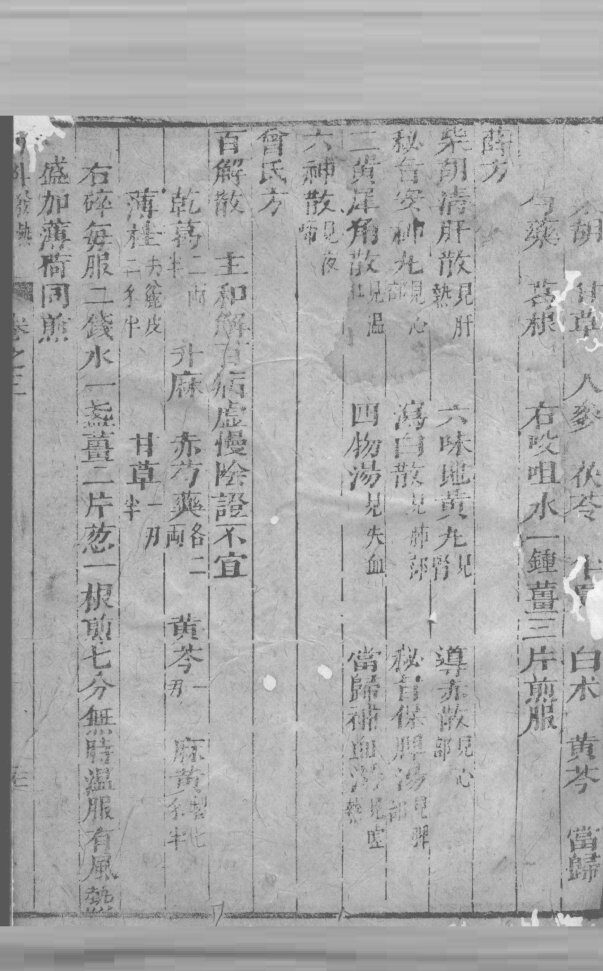 胡 甘草 人參 茯苓 白朮 黃芩 當歸
芍藥 葛根 右㕮咀水一鍾薑三片煎服
薛方
柴胡清肝散見肝熱 六味地黃丸見腎 導赤散見心部
秘旨安神丸見心部 瀉白散見肺部 秘旨保脾湯見脾部
二黃犀角散見溫 四物湯見失血 當歸補血湯見 熱
六神散見夜啼
曾氏方
百解散 主和解百病虛慢陰證不宜
乾葛二兩半 升麻 赤芍藥各二兩 黃芩一 麻黃製七 半
薄桂去麄皮二 半 甘草一 半
右碎每服二錢水一盞薑二片葱一根煎七分無時溫服有風熱
盛加薄荷同煎
卷之三